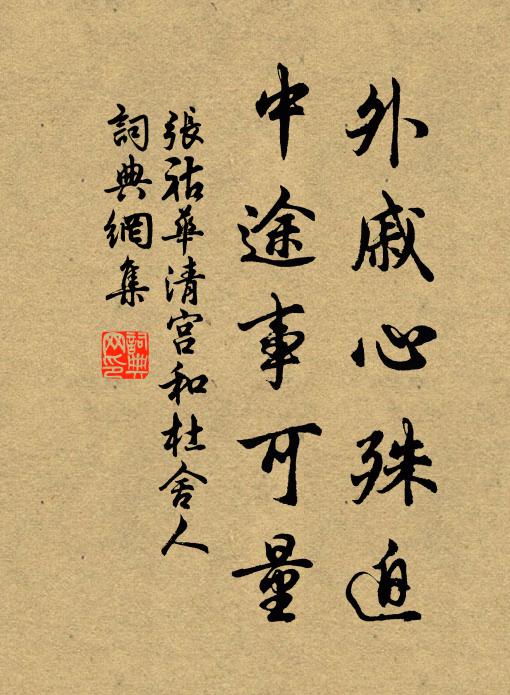 外戚心殊迫
中途事可量
張祜華清宮和杜舍人
詞典網集
詞典網印